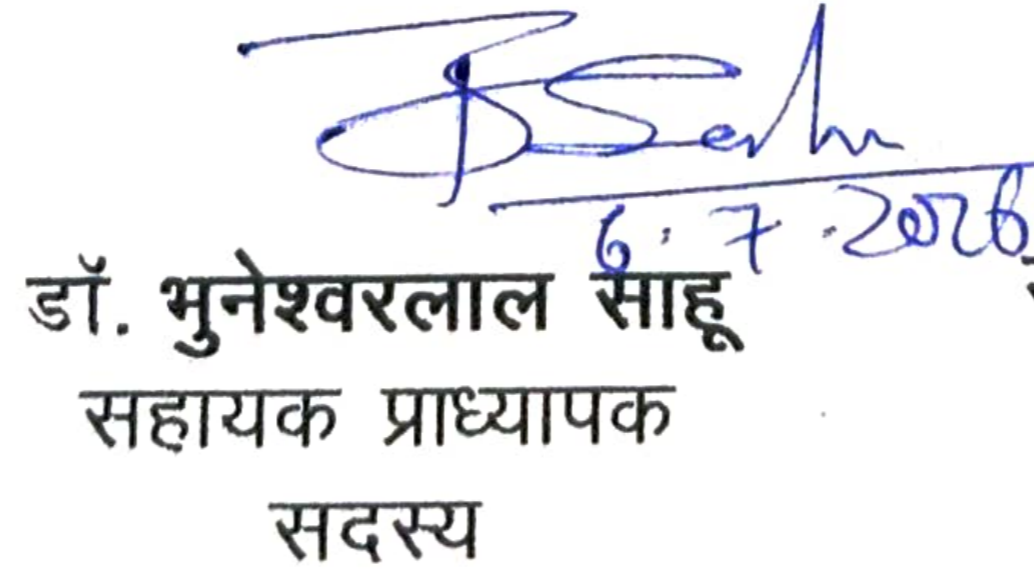 BSahu
6.7.2026
डॉ. भुनेश्वरलाल साहू
सहायक प्राध्यापक
सदस्य